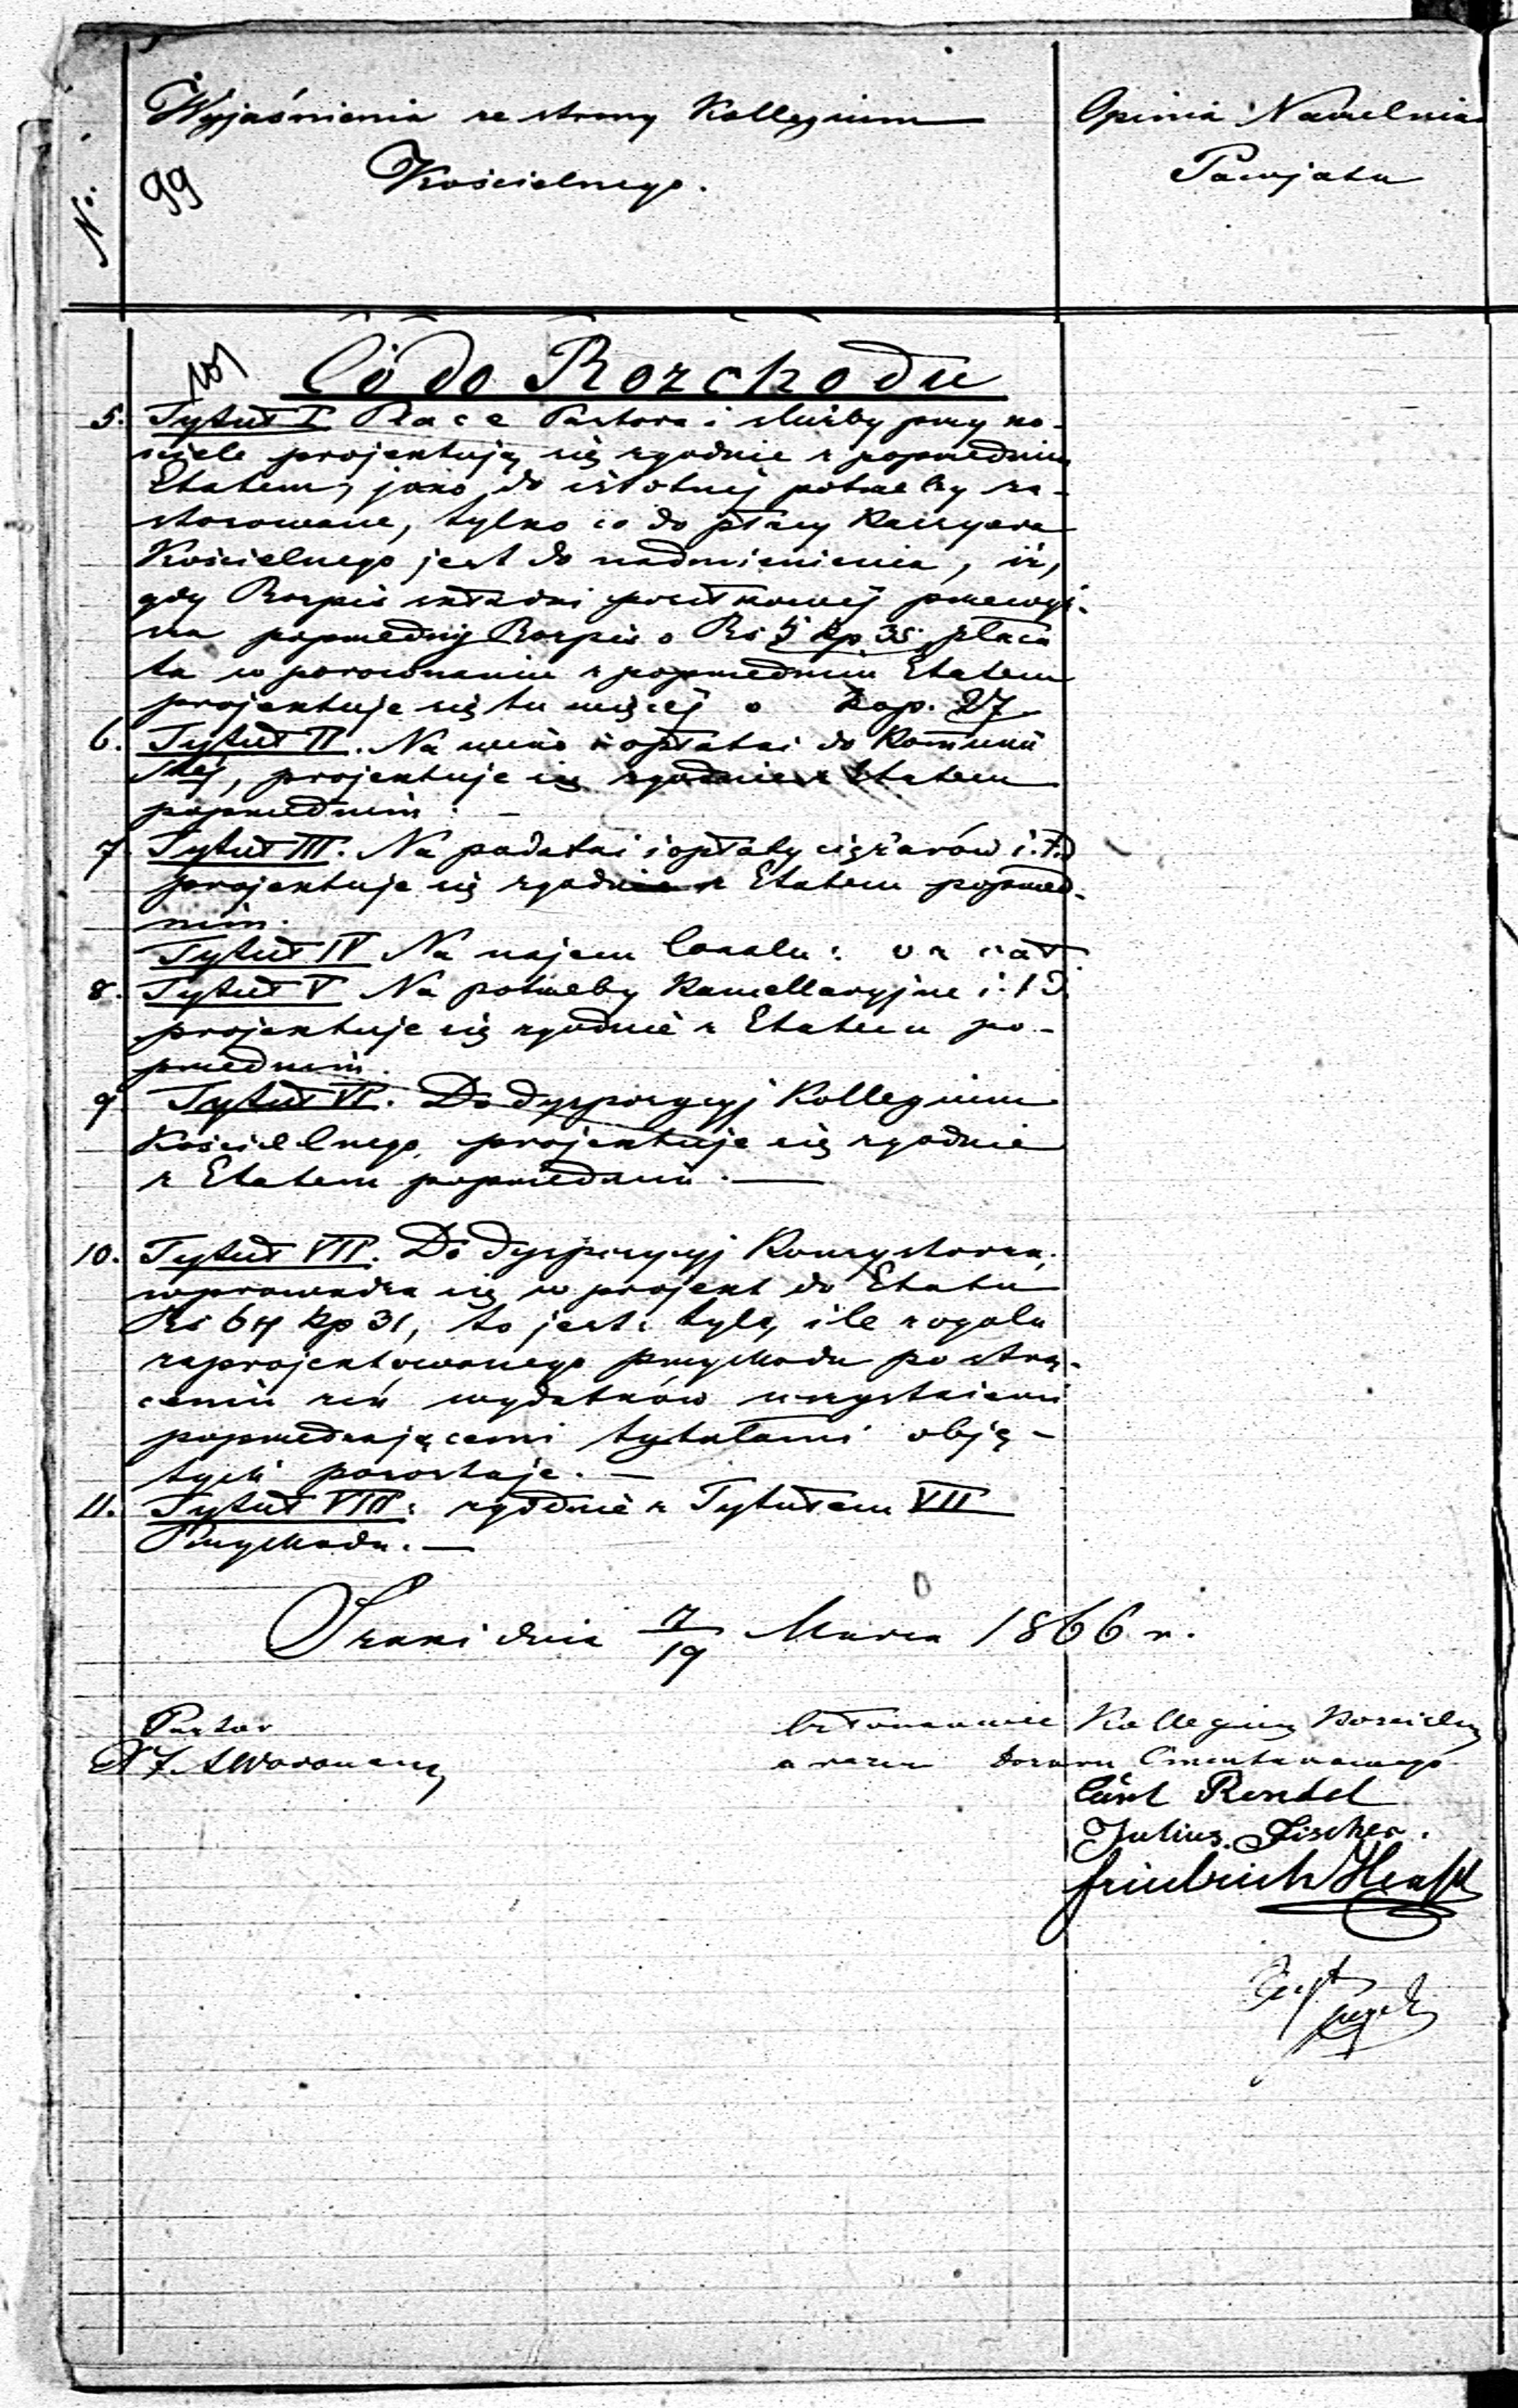 Wyjaśnienia ze strony Kollegium
Kościelnego.
Opinia Naczelnika
Powjatu
No.
99
101
Co do Rozchodu
5. Tytuł I Płace Pastora i służby przy ko-
ściele projektują się zgodnie z poprzednim
Etatem, jako do istotnej potrzeby za-
stosowane, tylko co do płacy Kassyera
Kościelnego jest do nadmienienia, iż,
gdy Rozpis składki powiększej przewyż-
sza poprzedny Rozpis o Rs 5 kp 35 płaca
ta w porownaniu z poprzednim Etatem
projektuje się tu więcej o kop. 27
6. Tytuł II. Na wino i opłatki do Kommunii
Stej, projektuje się zgodnie z Etatem
poprzednim. -
7. Tytuł III. Na podatki i opłaty ciężarów i.t.d
projektuje się zgodnie z Etatem poprzed-
nim.
Tytuł IV Na najem lokalu: vacat
8. Tytuł V Na potrzeby Kancellaryjne i.t.d.
projektuje się zgodnie z Etatem po-
przednim.
9 Tytuł VI. Do dyspozycyj Kollegium
Kościelnego, projektuje się zgodnie
z Etatem poprzednim. —
10. Tytuł VII. Do dyspozycyj Konsystorza,
wprowadza się w projekt do Etatu
Rs 64 kp 31, to jest: tyle, ile z ogołu
zaprojektowanego przychodu po strą-
ceniu zeń wydatków wszystkiemi
poprzedzającemi tytułami obję-
tych pozostaje. —
11. Tytuł VIII: zgodnie z Tytułem VII
Przychodu. —
dnia 7/19 Marca 1866 r.
Pastor
Członkowie Kollegium Kościeln
a razem Dozoru Cmentarnego
Carl Rendel
Julius Fischer.
Friedrich